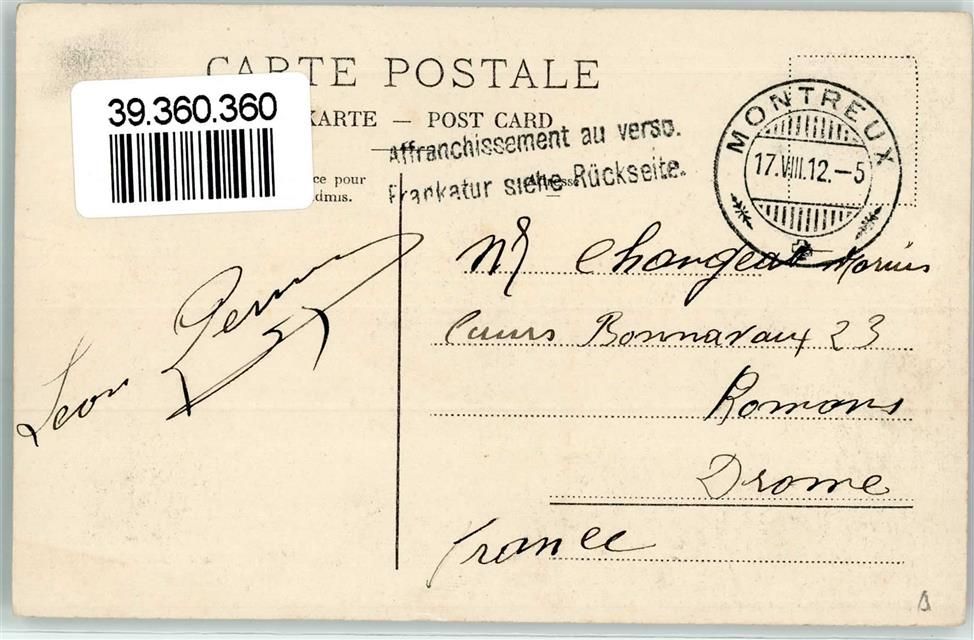 CARTE POSTALE
39.360.360
KARTE — POST CARD
Affranchissement au verso.
Frankatur siehe Rückseite.
MONTREUX
17.VIII.12.–5
ce pour
dmis.
Mr Changeat Marius
Cours Bonnavaux 23
Romans
Drome
France
Leon